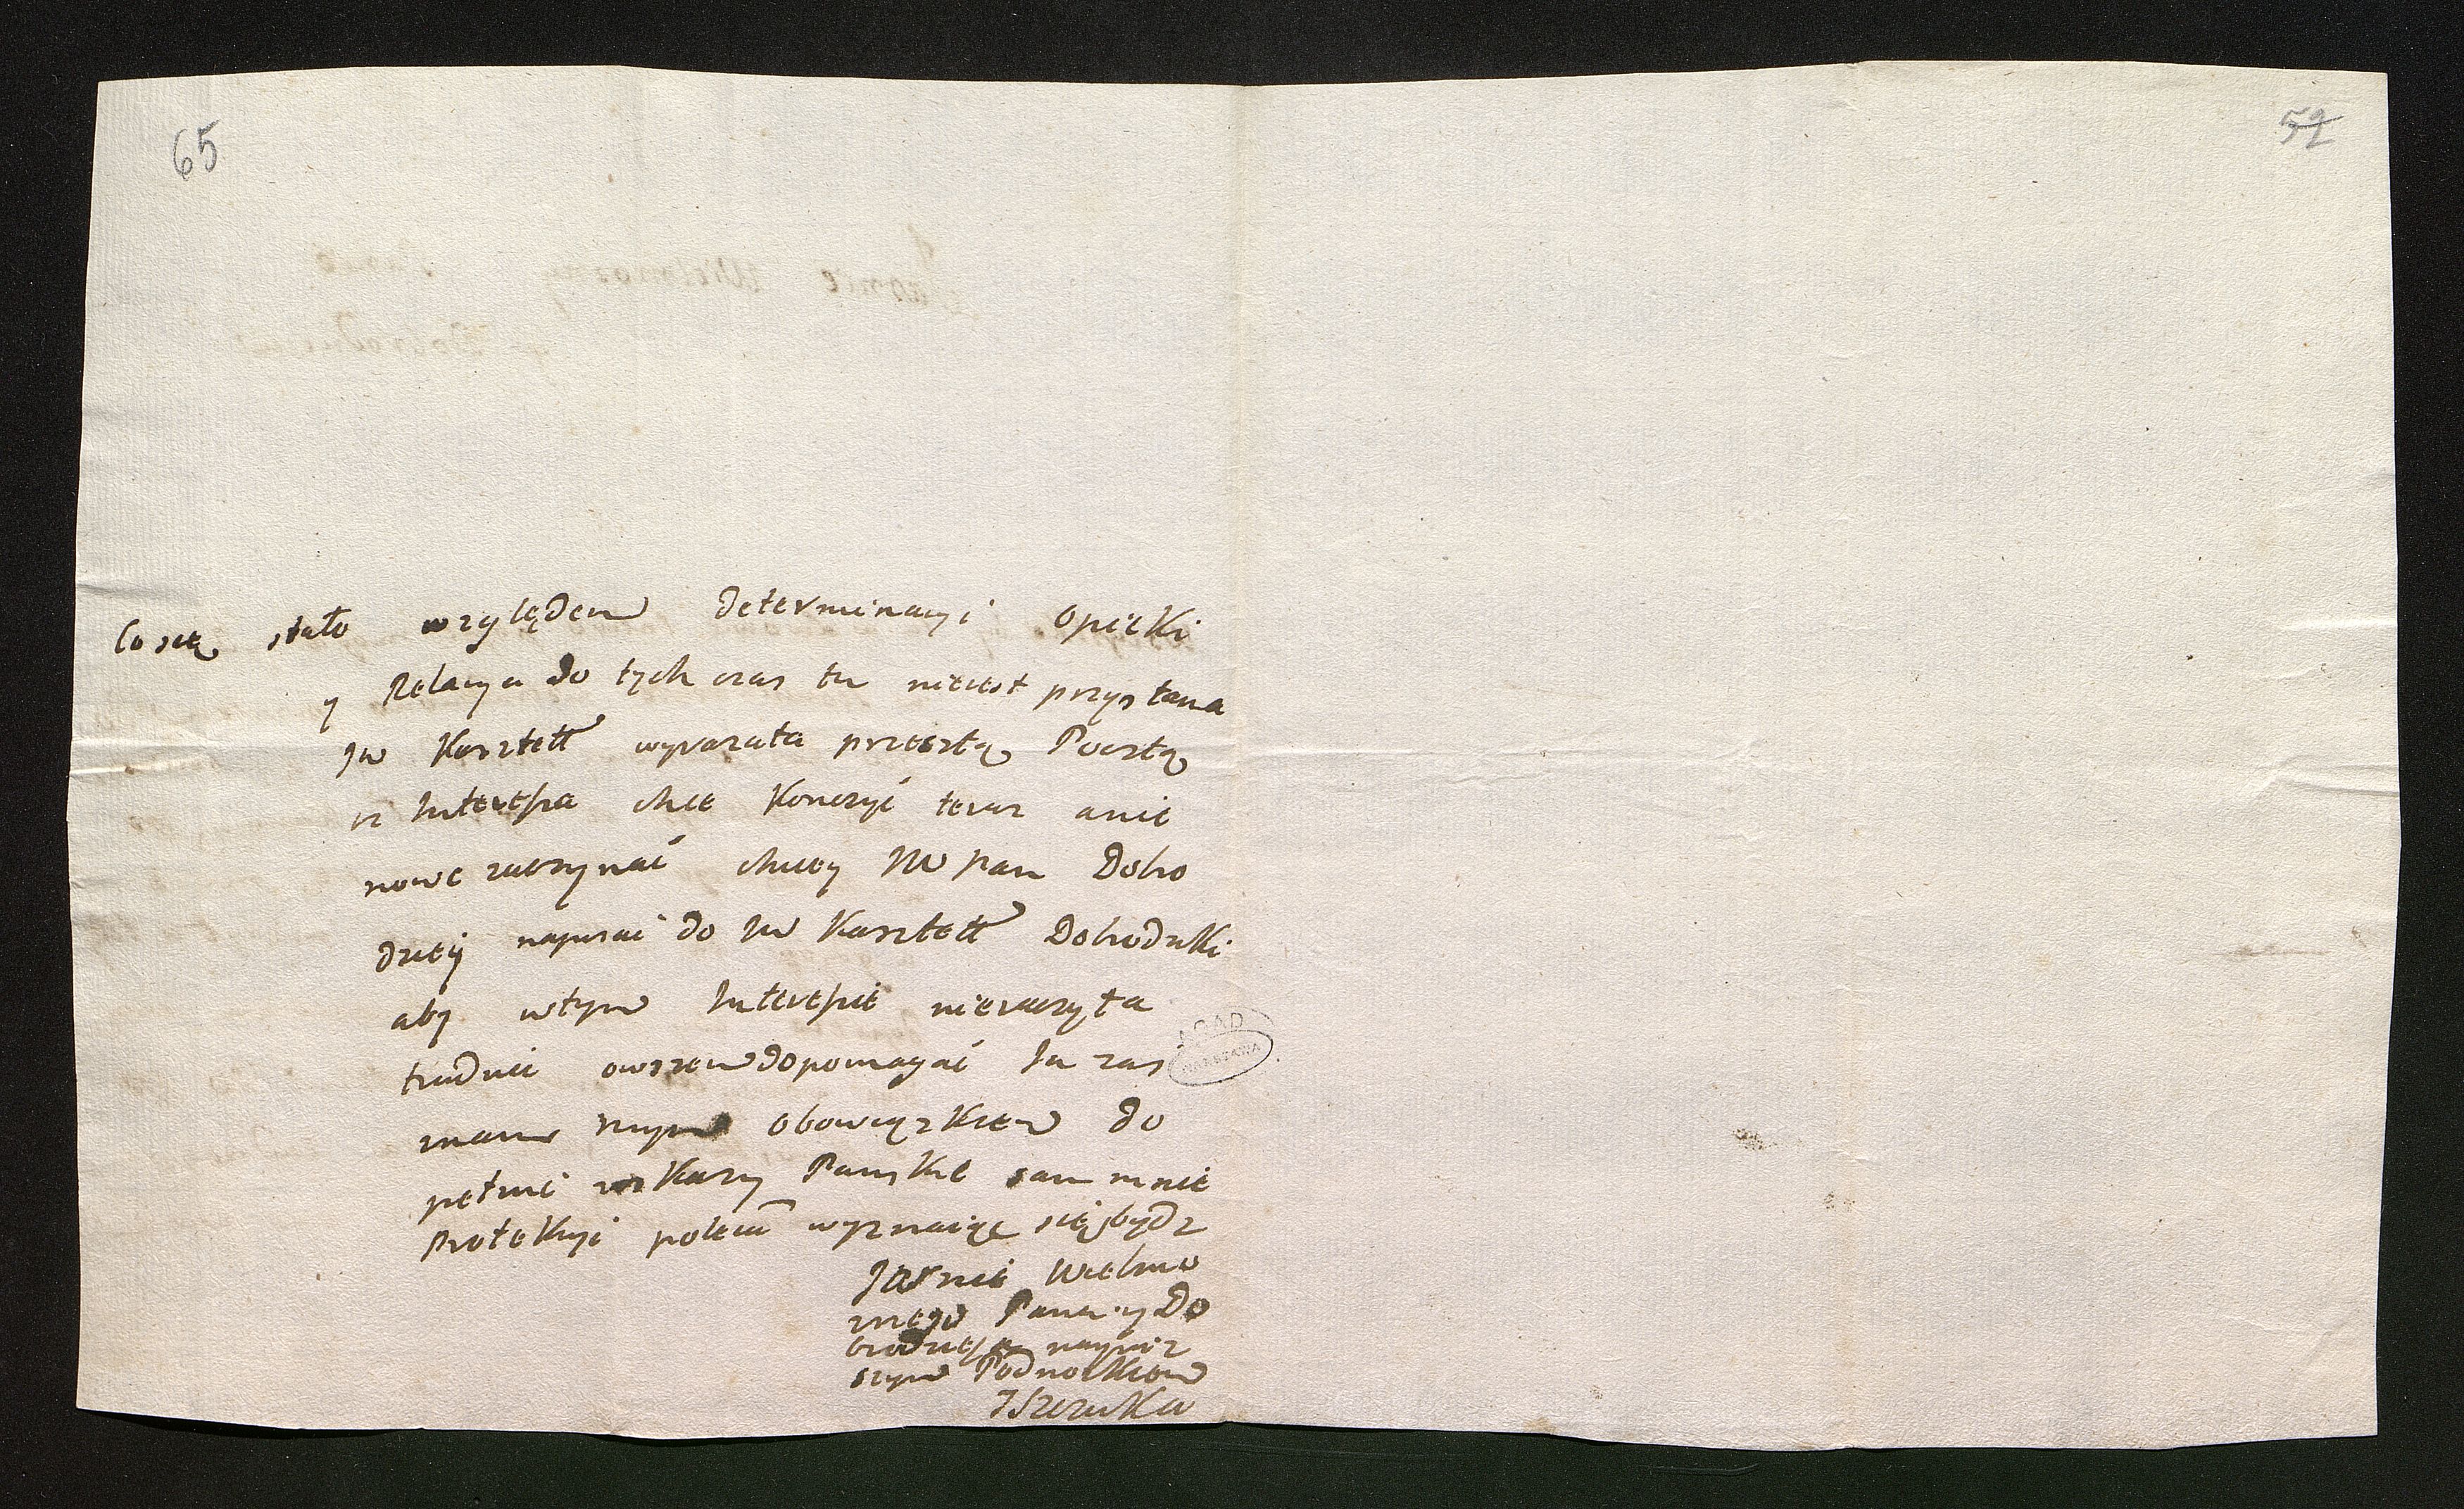 65
52
Co się stało względem determinacyi opieki
y Relacya do tych czas tu nieiest przysłana
JW Kasztell wyraziła przeszłą Pocztą
iż Interessa chce Konczyć teraz a nie
nowe zaczynać chciey JW Pan Dobro
dziey napisać do JW Kasztell Dobrodziki
aby wtym Interessie nieraczyła
trudnić owszem dopomagać Ja zas
mam mym obowiązkiem do
pełnić rozkazy Panskie sam mnie
Protekcyi polecam wyznaiąc się bydz
Jasnie Wielmo
żnego Pana y Do
brodzieja nayniż
szym Podnozkiem
JSzczuka
AGAD
WARSZAWA